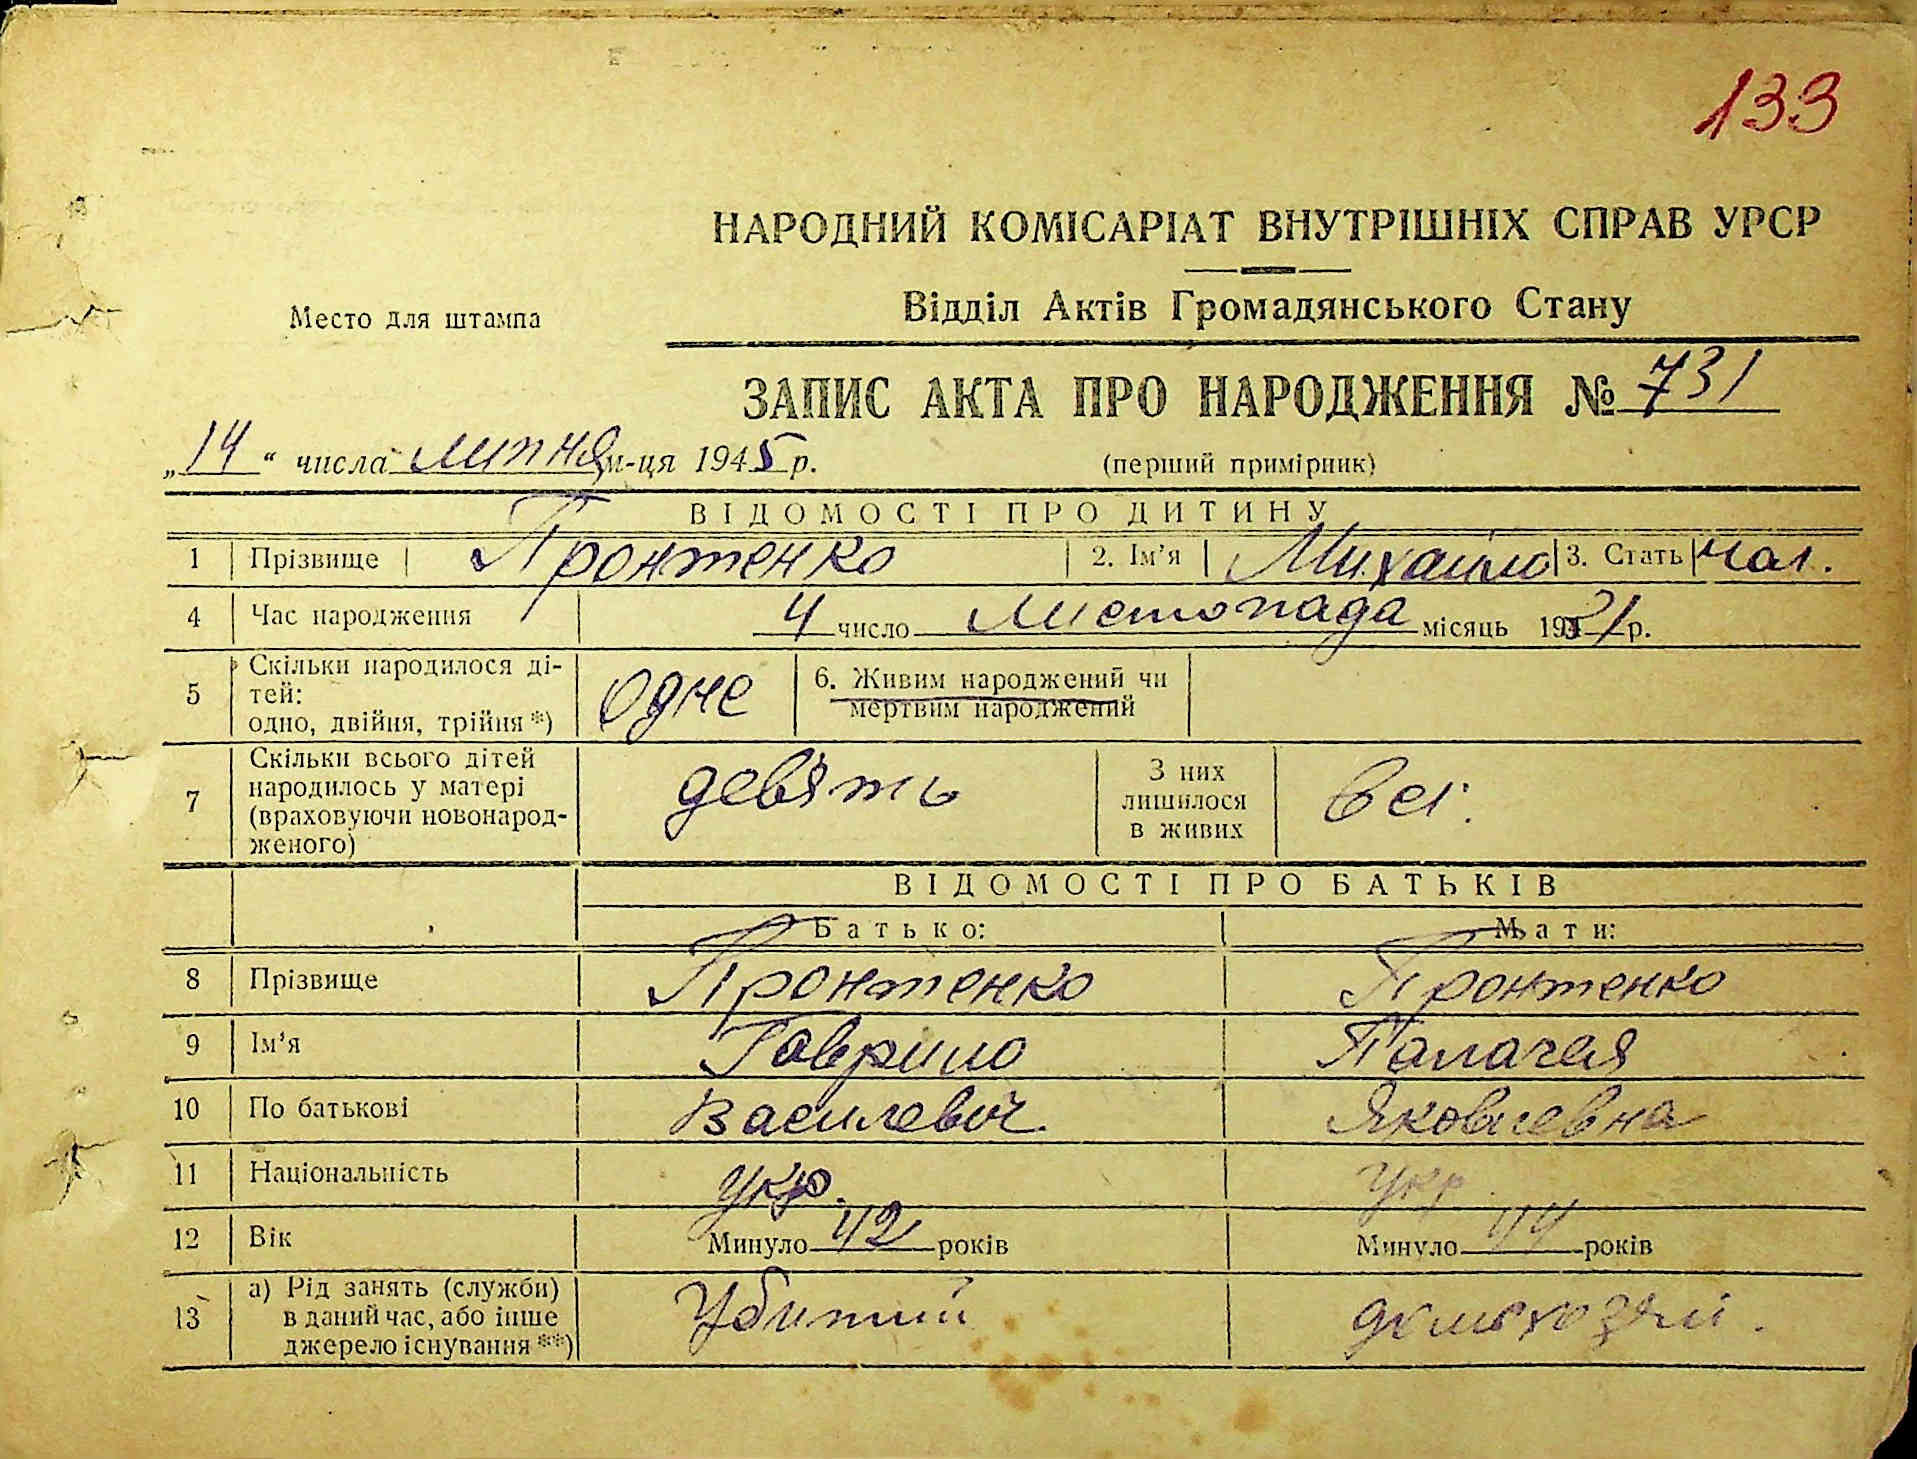 133
НАРОДНИЙ КОМІСАРІАТ ВНУТРІШНІХ СПРАВ УРСР
Место для штампа
Відділ Актів Громадянського Стану
ЗАПИС АКТА ПРО НАРОДЖЕННЯ № 731
„14“ числа липня м-ця 1945 р. (перший примірник)
ВІДОМОСТІ ПРО ДИТИНУ
1 Прізвище Пронтенко 2. Ім’я Михайло 3. Стать чол.
4 Час народження 4 число Листопада місяць 1931 р.
5 Скільки народилося ді-
тей:
одно, двійня, трійня *) одне 6. Живим народжений чи
мертвим народжений
7 Скільки всього дітей
народилось у матері
(враховуючи новонарод-
женого) девять З них
лишилося
в живих всі
ВІДОМОСТІ ПРО БАТЬКІВ
Батько: Мати:
8 Прізвище Пронтенко Пронтенко
9 Ім’я Гаврило Палачея
10 По батькові Василевич Яковлевна
11 Національність укр. укр.
12 Вік Минуло 42 років Минуло 44 років
13 а) Рід занять (служби)
в даний час, або інше
джерело існування **) Убитий